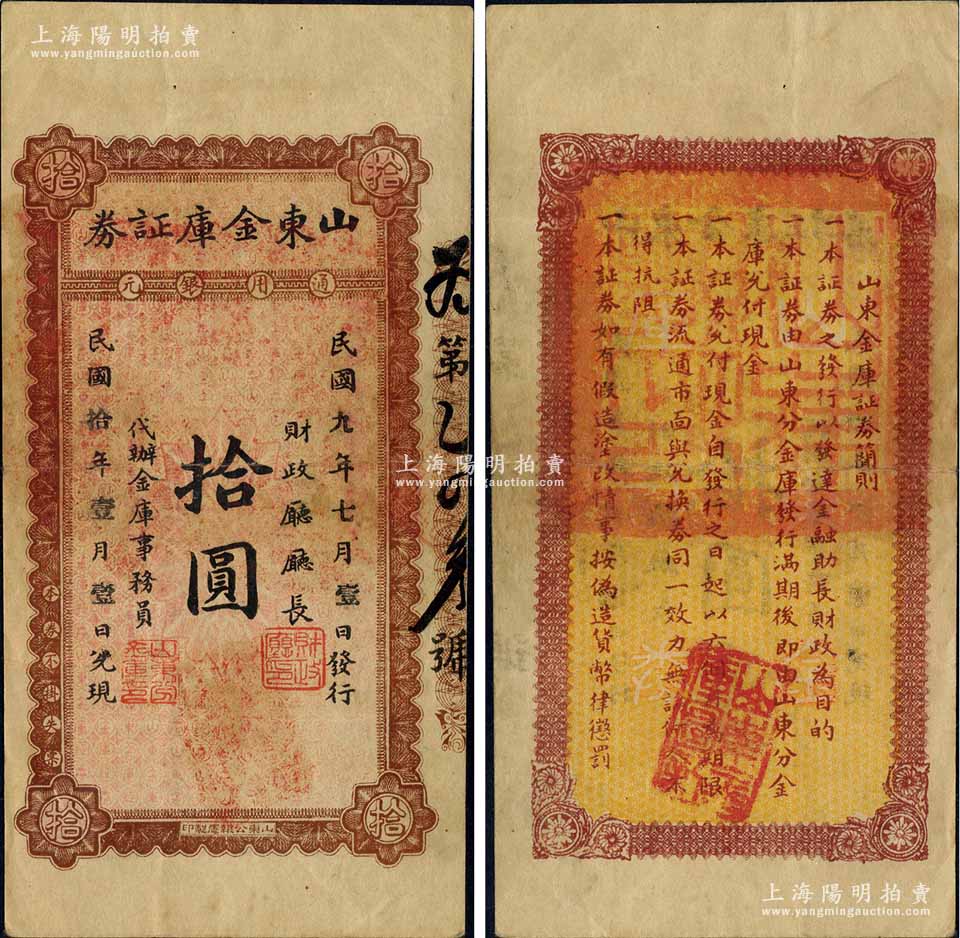 上海陽明拍賣
www.yangmingauction.com
拾
拾
山東金庫証券
通用銀元
民國九年七月壹日發行
財政廳廳長
拾圓
代辦金庫事務員
民國拾年壹月壹日兌現
第
號
財政廳印
拾
拾
山東公報處製印
上海陽明拍賣
www.yangmingauction.com
山東金庫証券簡則
一本証券之發行以發達金融助長財政為目的
一本証券由山東分金庫發行滿期後即由山東分金
庫兌付現金
一本証券兌付現金自發行之日起以六個月為期限
一本証券流通市面與兌換券同一效力無
得抗阻
一本証券如有假造塗改情事按偽造貨幣律懲罰
上海陽明拍賣
www.yangmingauction.com